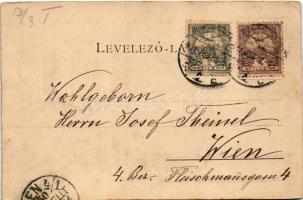 13/3 I
LEVELEZŐ-LA
Wohlgeborn
Herrn Josef Theinel
Wien
4. Bez. Fleischmanngasse 4